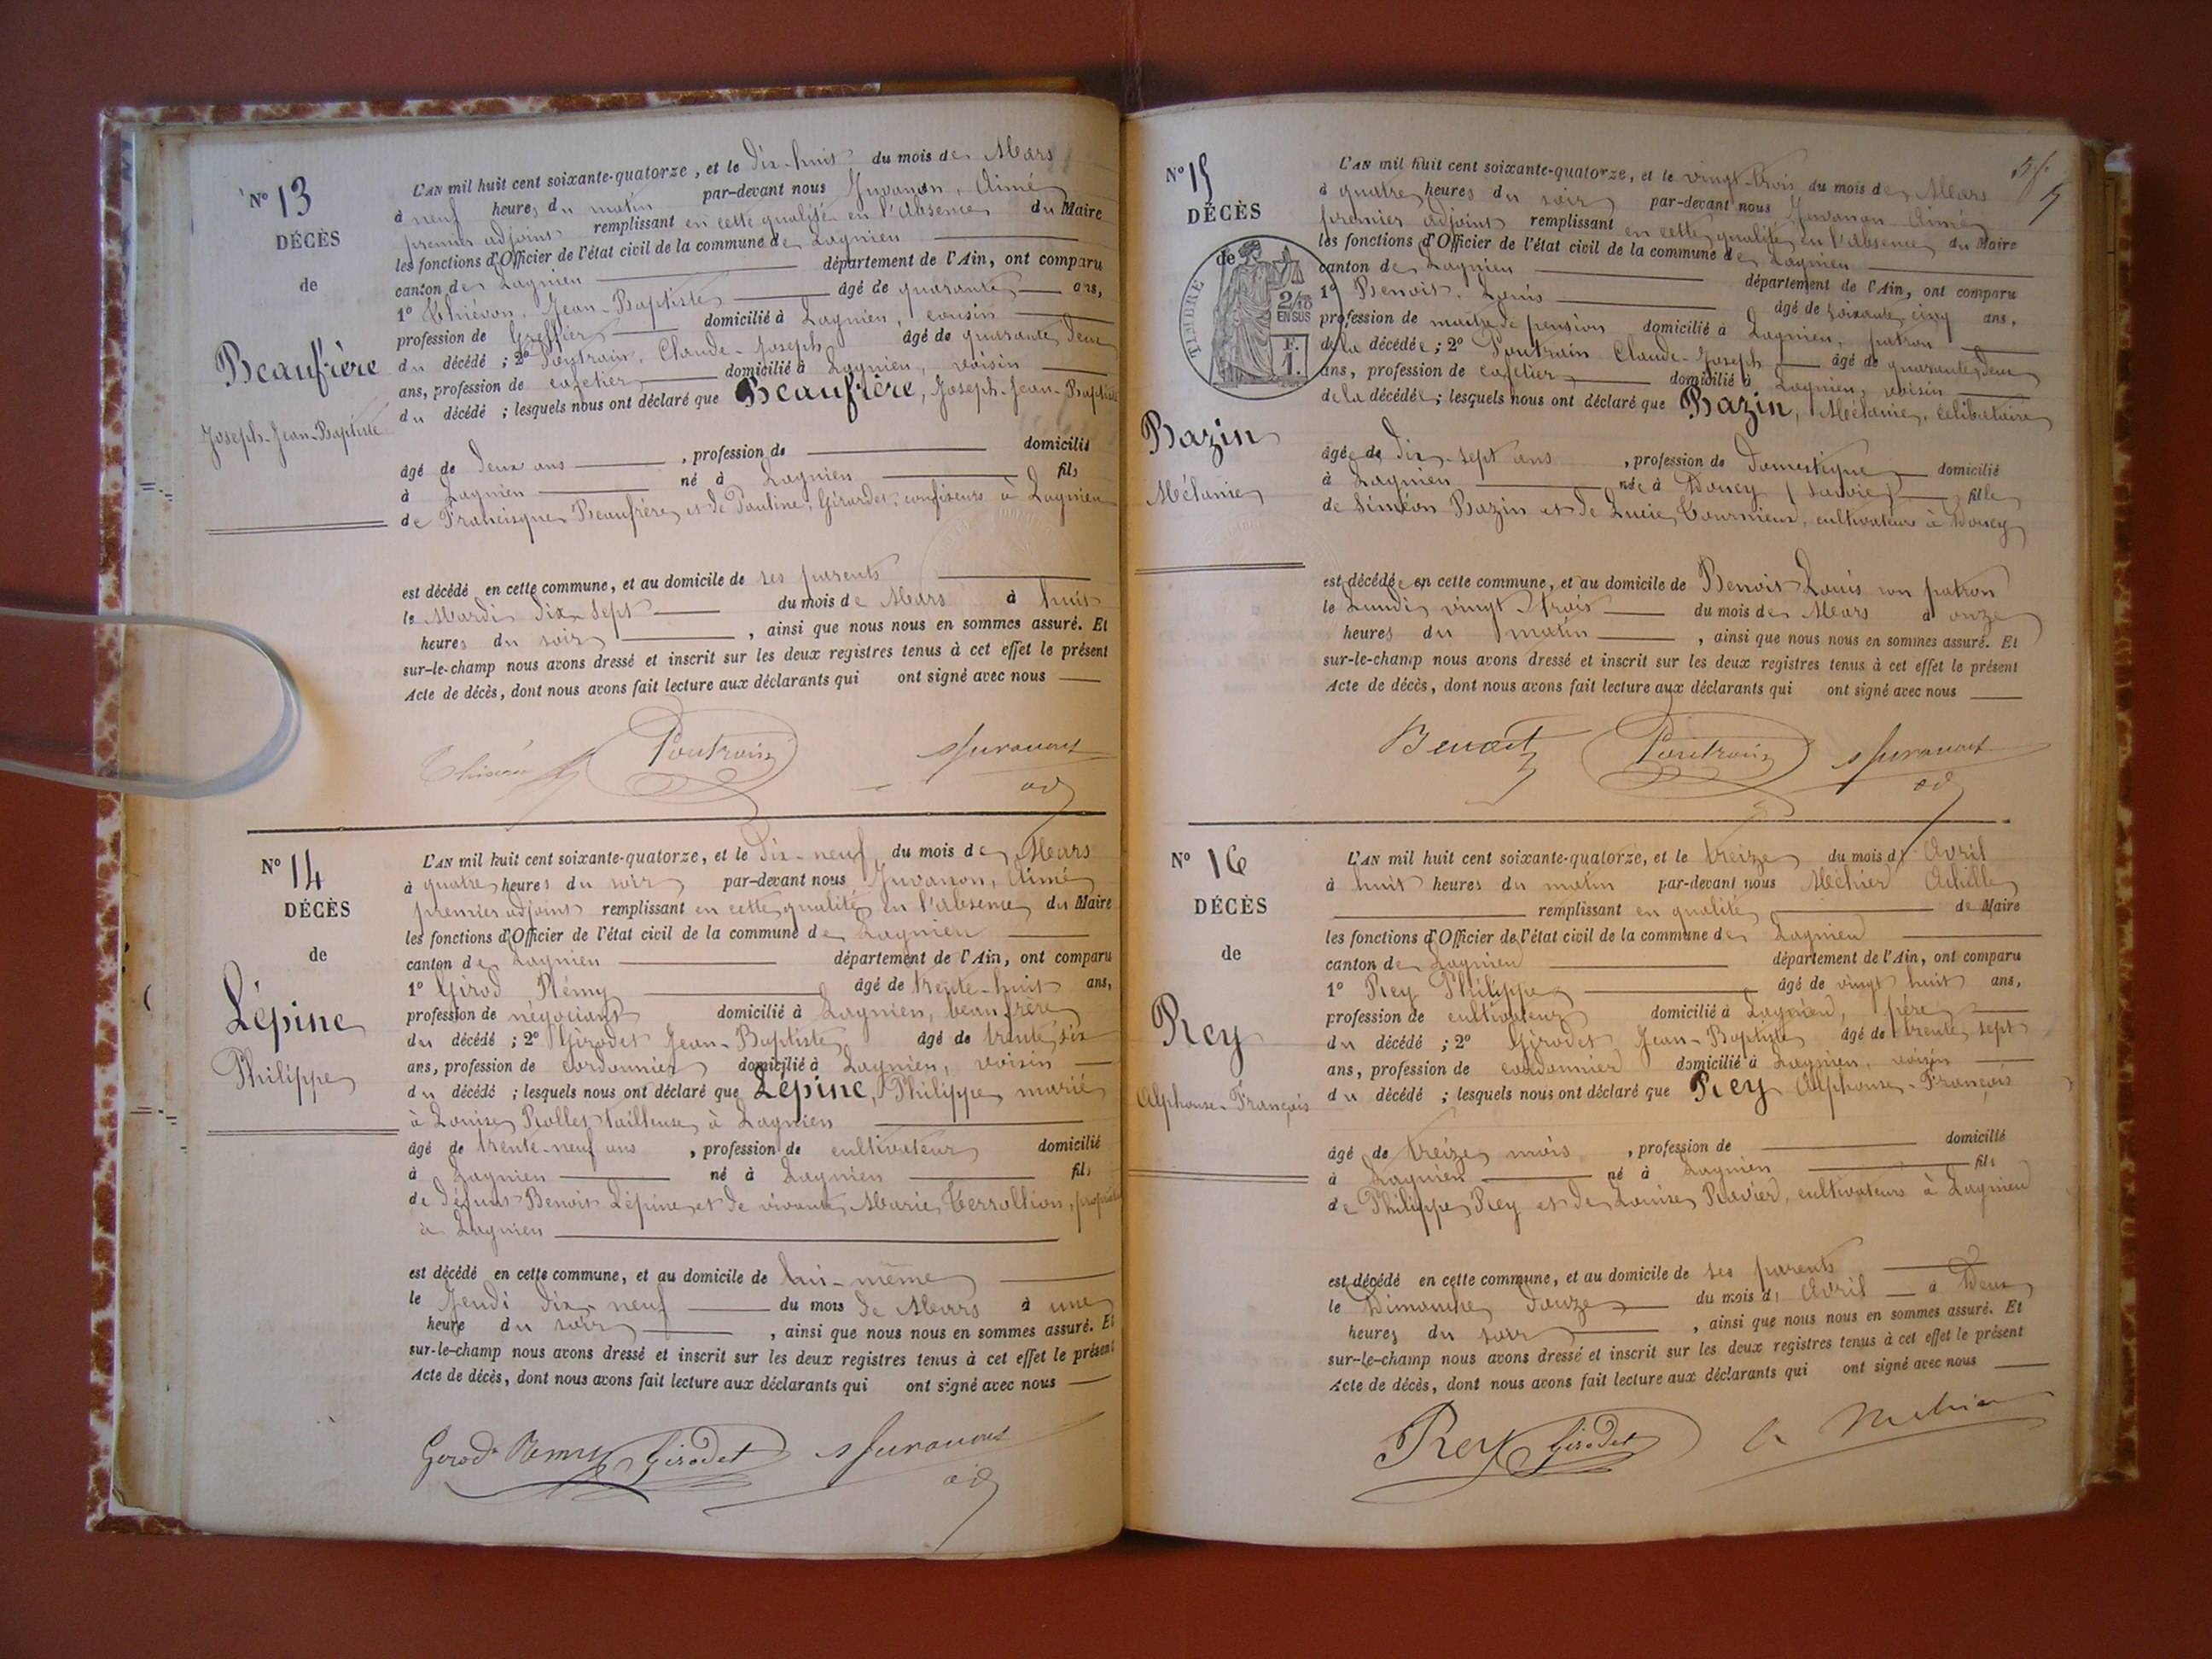 N° 13
DÉCÈS
de
Beaufrère
Joseph-Jean-Baptiste
L'AN mil huit cent soixante-quatorze, et le Dix-huit du mois de Mars
à neuf heures du matin par-devant nous Juvanon, Aimé
premier adjoint remplissant en cette qualité en l'absence du Maire
les fonctions d'Officier de l'état civil de la commune de Lagnieu
canton de Lagnieu département de l'Ain, ont comparu
1° Thiévon, Jean-Baptiste âgé de quarante ans,
profession de Greffier domicilié à Lagnieu, cousin
du décédé ; 2° Poutrain, Claude-Joseph âgé de quarante deux
ans, profession de cafetier domicilié à Lagnieu, voisin
du décédé ; lesquels nous ont déclaré que Beaufrère, Joseph-Jean-Baptiste
âgé de Deux ans , profession de domicilié
à Lagnieu né à Lagnieu fils
de Francisque Beaufrère et de Pauline Girardet, confiseurs à Lagnieu
est décédé en cette commune, et au domicile de ses parents
le Mardi dix-sept du mois de Mars à huit
heures du soir , ainsi que nous nous en sommes assuré. Et
sur-le-champ nous avons dressé et inscrit sur les deux registres tenus à cet effet le présent
Acte de décès, dont nous avons fait lecture aux déclarants qui ont signé avec nous
Poutrain Juvanon
adj
N° 14
DÉCÈS
de
Lépine
Philippe
L'AN mil huit cent soixante-quatorze, et le Dix-neuf du mois de Mars
à quatre heures du soir par-devant nous Juvanon, Aimé
premier adjoint remplissant en cette qualité en l'absence du Maire
les fonctions d'Officier de l'état civil de la commune de Lagnieu
canton de Lagnieu département de l'Ain, ont comparu
1° Girod Rémy âgé de trente-huit ans,
profession de négociant domicilié à Lagnieu, beau frère
du décédé ; 2° Girodet Jean-Baptiste âgé de trente six
ans, profession de cordonnier domicilié à Lagnieu, voisin
du décédé ; lesquels nous ont déclaré que Lépine, Philippe marié
à Louise Rollet tailleuse à Lagnieu
âgé de trente-neuf ans , profession de cultivateur domicilié
à Lagnieu né à Lagnieu fils
de défunt Benoit Lépine et de vivante Marie
à Lagnieu
est décédé en cette commune, et au domicile de lui-même
le Jeudi dix-neuf du mois de Mars à une
heure du soir , ainsi que nous nous en sommes assuré. Et
sur-le-champ nous avons dressé et inscrit sur les deux registres tenus à cet effet le présent
Acte de décès, dont nous avons fait lecture aux déclarants qui ont signé avec nous
Girod Remy Girodet Juvanon
adj
N° 15
DÉCÈS
de
TIMBRE
2/10
EN SUS
F.
1.
Bazin
Mélanie
L'AN mil huit cent soixante-quatorze, et le vingt-trois du mois de Mars
à quatre heures du soir par-devant nous Juvanon Aimé
premier adjoint remplissant en cette qualité en l'absence du Maire
les fonctions d'Officier de l'état civil de la commune de Lagnieu
canton de Lagnieu département de l'Ain, ont comparu
1° Benoit, Louis âgé de soixante cinq ans,
profession de maître de pension domicilié à Lagnieu, patron
de la décédée ; 2° Poutrain Claude-Joseph âgé de quarante deux
ans, profession de cafetier domicilié à Lagnieu, voisin
de la décédée ; lesquels nous ont déclaré que Bazin, Mélanie, célibataire
âgée de Dix-sept ans , profession de Domestique domicilié
à Lagnieu née à Doucy (Savoie) fille
de Siméon Bazin et de Lucie Tournieux, cultivateurs à Doucy
est décédée en cette commune, et au domicile de Benoit Louis son patron
le Lundi vingt trois du mois de Mars à onze
heures du matin , ainsi que nous nous en sommes assuré. Et
sur-le-champ nous avons dressé et inscrit sur les deux registres tenus à cet effet le présent
Acte de décès, dont nous avons fait lecture aux déclarants qui ont signé avec nous
Benoit Poutrain Juvanon
adj
N° 16
DÉCÈS
de
Rey
Alphonse-François
L'AN mil huit cent soixante-quatorze, et le treize du mois d' Avril
à huit heures du matin par-devant nous Méhier Achille
remplissant en qualité de Maire
les fonctions d'Officier de l'état civil de la commune de Lagnieu
canton de Lagnieu département de l'Ain, ont comparu
1° Rey Philippe âgé de vingt huit ans,
profession de cultivateur domicilié à Lagnieu, père
du décédé ; 2° Girodet Jean-Baptiste âgé de trente sept
ans, profession de cordonnier domicilié à Lagnieu, voisin
du décédé ; lesquels nous ont déclaré que Rey Alphonse-François
âgé de treize mois , profession de domicilié
à Lagnieu né à Lagnieu fils
de Philippe Rey et de Louise Ravier, cultivateurs à Lagnieu
est décédé en cette commune, et au domicile de ses parents
le Dimanche douze du mois d' Avril à Deux
heures du soir , ainsi que nous nous en sommes assuré. Et
sur-le-champ nous avons dressé et inscrit sur les deux registres tenus à cet effet le présent
Acte de décès, dont nous avons fait lecture aux déclarants qui ont signé avec nous
Rey Girodet A Mehier